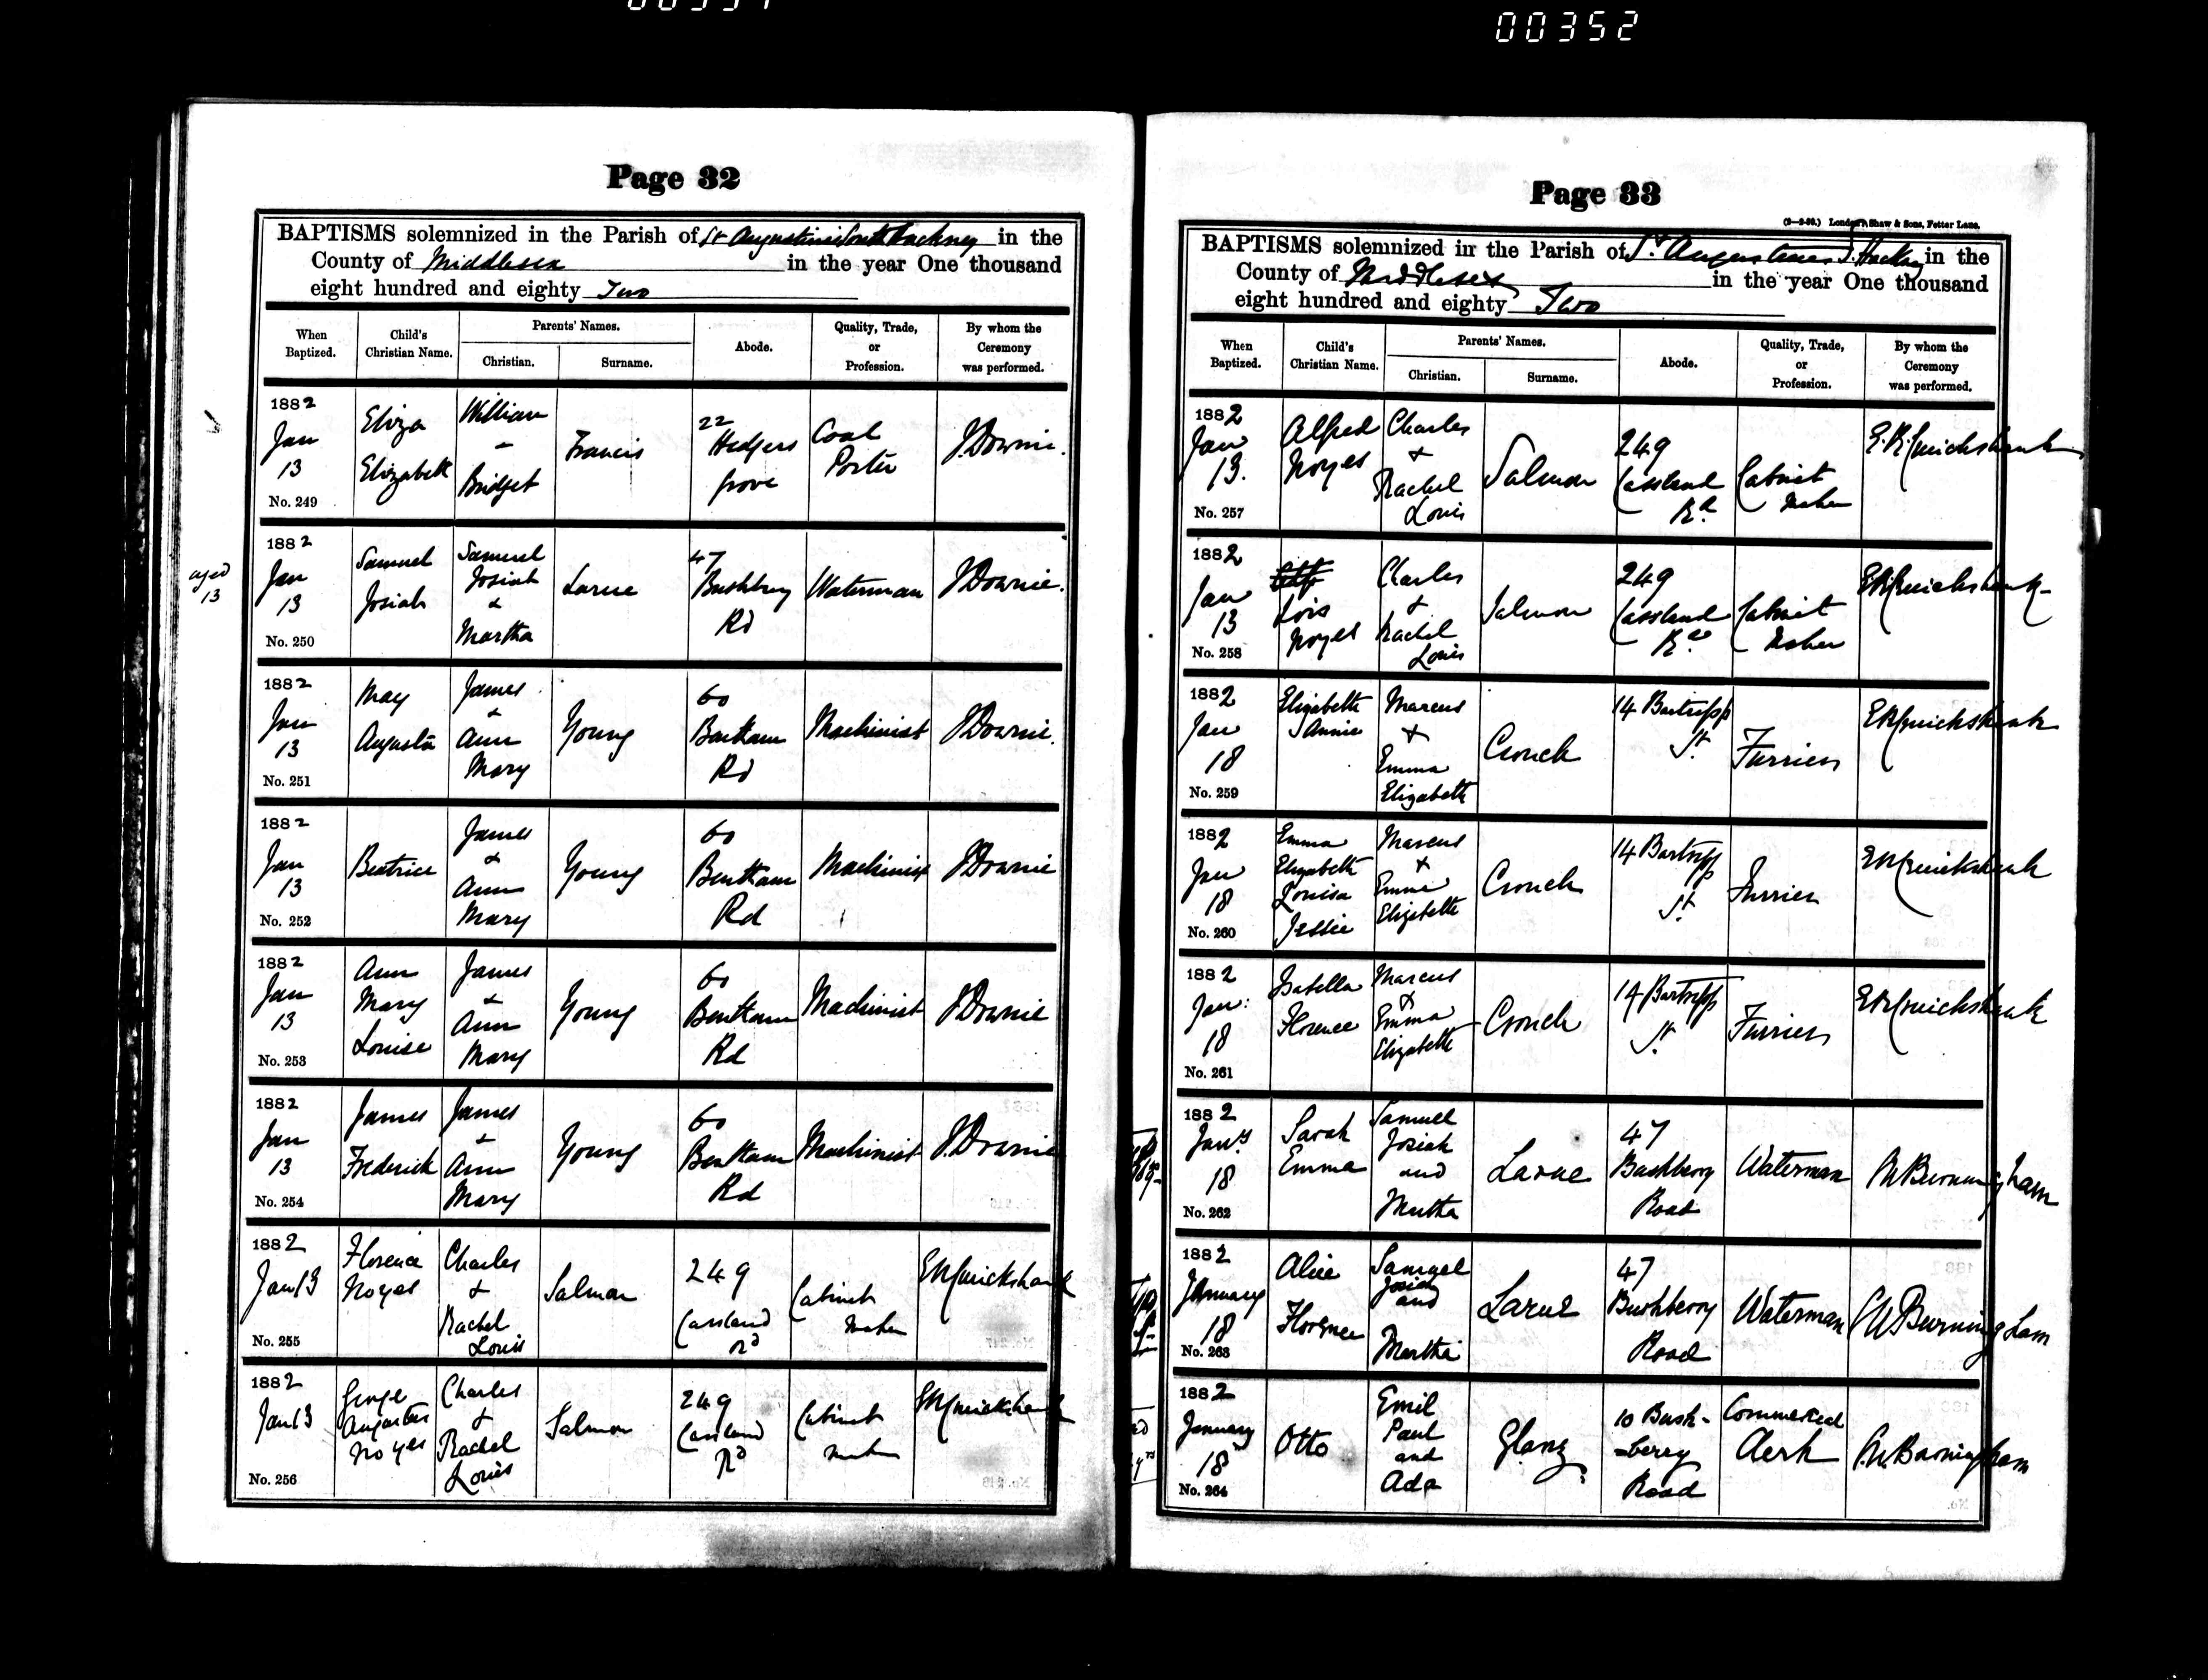 00352
Page 32
BAPTISMS solemnized in the Parish of St Augustine South Hackney in the
County of Middlesex in the year One thousand
eight hundred and eighty Two
When Baptized.
Child's Christian Name.
Parents' Names.
Christian.
Surname.
Abode.
Quality, Trade, or Profession.
By whom the Ceremony was performed.
1882 Jan 13 No. 249
Eliza Elizabeth
William - Bridget
Francis
22 Hedgers Grove
Coal Porter
J. Downie.
aged 13
1882 Jan 13 No. 250
Samuel Josiah
Samuel Josiah & Martha
Larue
47 Bushbery Rd
Waterman
J Downie.
1882 Jan 13 No. 251
May Augusta
James & Ann Mary
Young
60 Bentham Rd
Machinist
J Downie.
1882 Jan 13 No. 252
Beatrice
James & Ann Mary
Young
60 Bentham Rd
Machinist
J Downie
1882 Jan 13 No. 253
Ann Mary Louise
James & Ann Mary
Young
60 Bentham Rd
Machinist
J Downie
1882 Jan 13 No. 254
James Frederick
James & Ann Mary
Young
60 Bentham Rd
Machinist
J. Downie
1882 Jan 13 No. 255
Florence Noyes
Charles & Rachel Louis
Salmon
249 Cassland Rd
Cabinet Maker
E R Cruickshank
1882 Jan 13 No. 256
George Augustus Noyes
Charles & Rachel Louis
Salmon
249 Cassland Rd
Cabinet Maker
E R Cruickshank
Page 33
(3—2-80.) London: Shaw & Sons, Fetter Lane.
BAPTISMS solemnized in the Parish of St. Augustines S. Hackney in the
County of Middlesex in the year One thousand
eight hundred and eighty Two
When Baptized.
Child's Christian Name.
Parents' Names.
Christian.
Surname.
Abode.
Quality, Trade, or Profession.
By whom the Ceremony was performed.
1882 Jan 13. No. 257
Alfred Noyes
Charles & Rachel Louis
Salmon
249 Cassland Rd
Cabinet Maker
E. R. Cruickshank
1882 Jan 13 No. 258
Lois Noyes
Charles & Rachel Louis
Salmon
249 Cassland Rd
Cabinet Maker
E R Cruickshank
1882 Jan 18 No. 259
Elizabeth Annie
Marcus & Emma Elizabeth
Crouch
14 Bartripp St.
Furrier
E R Cruickshank
1882 Jan 18 No. 260
Emma Elizabeth Louisa Jessie
Marcus & Emma Elizabeth
Crouch
14 Bartripp St.
Furrier
E R Cruickshank
1882 Jan: 18 No. 261
Isabella Florence
Marcus & Emma Elizabeth
Crouch
14 Bartripp St.
Furrier
E R Cruickshank
1882 Jany 18 No. 262
Sarah Emma
Samuel Josiah and Martha
Larue
47 Bushberry Road
Waterman
C W Burningham
1882 January 18 No. 263
Alice Florence
Samuel Josiah and Martha
Larue
47 Bushberry Road
Waterman
C W Burningham
1882 January 18 No. 264
Otto
Emil Paul and Ada
Glanz
10 Bush-berry Road
Commercial Clerk
C. W. Burningham